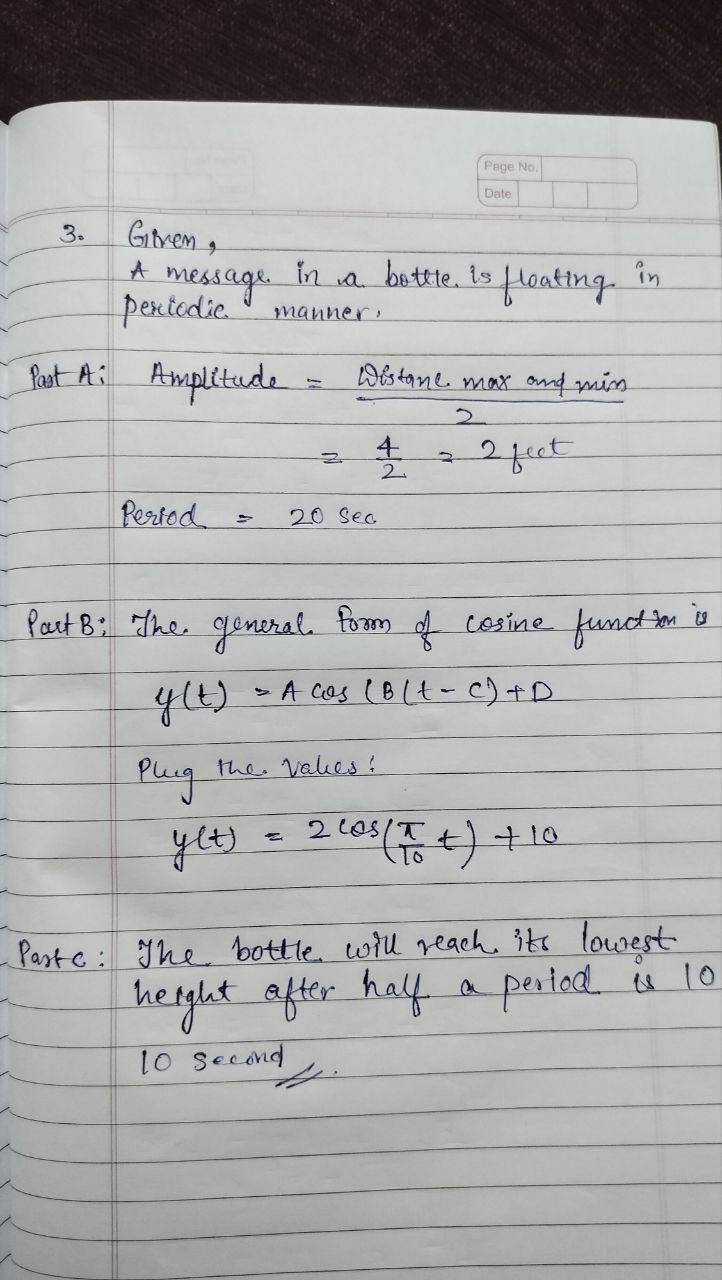 Page No.
Date
3. Given,
A message in a bottle is floating in
periodic manner.
Part A: Amplitude = Distane max and min
2
= 4/2 = 2 feet
Period = 20 sec
Part B: The general form of cosine function is
y(t) = A cos (B(t - C) + D
Plug the values:
y(t) = 2 cos(π/10 t) + 10
Part c: The bottle will reach its lowest
height after half a period is 10
10 second